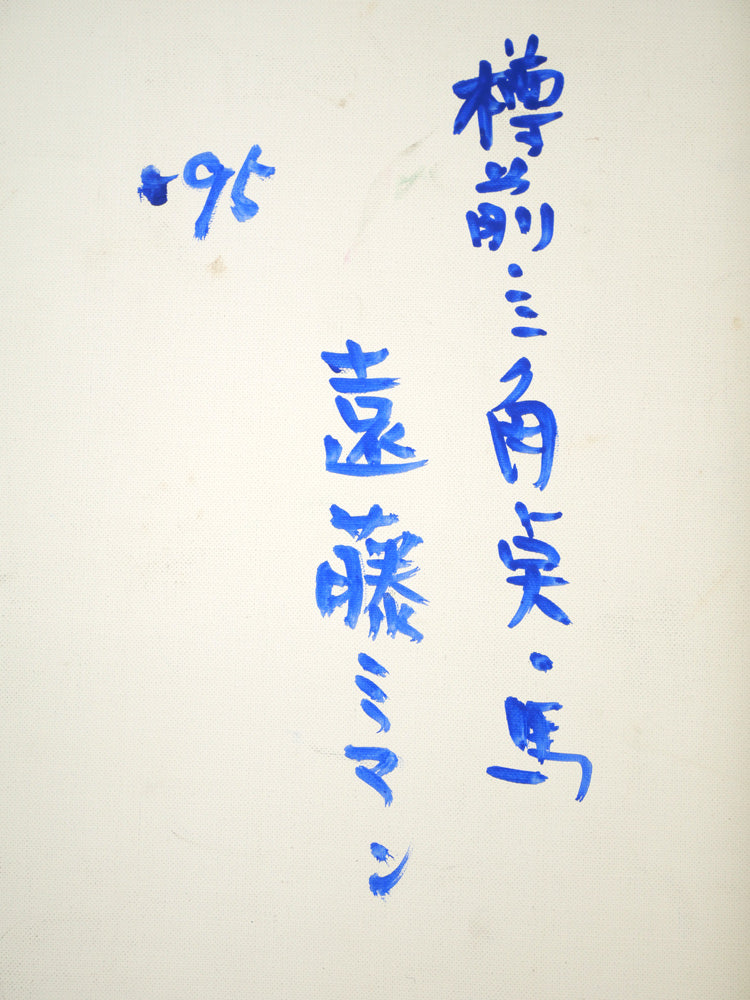 樽前・三角奌・馬
遠藤ミマン
・95